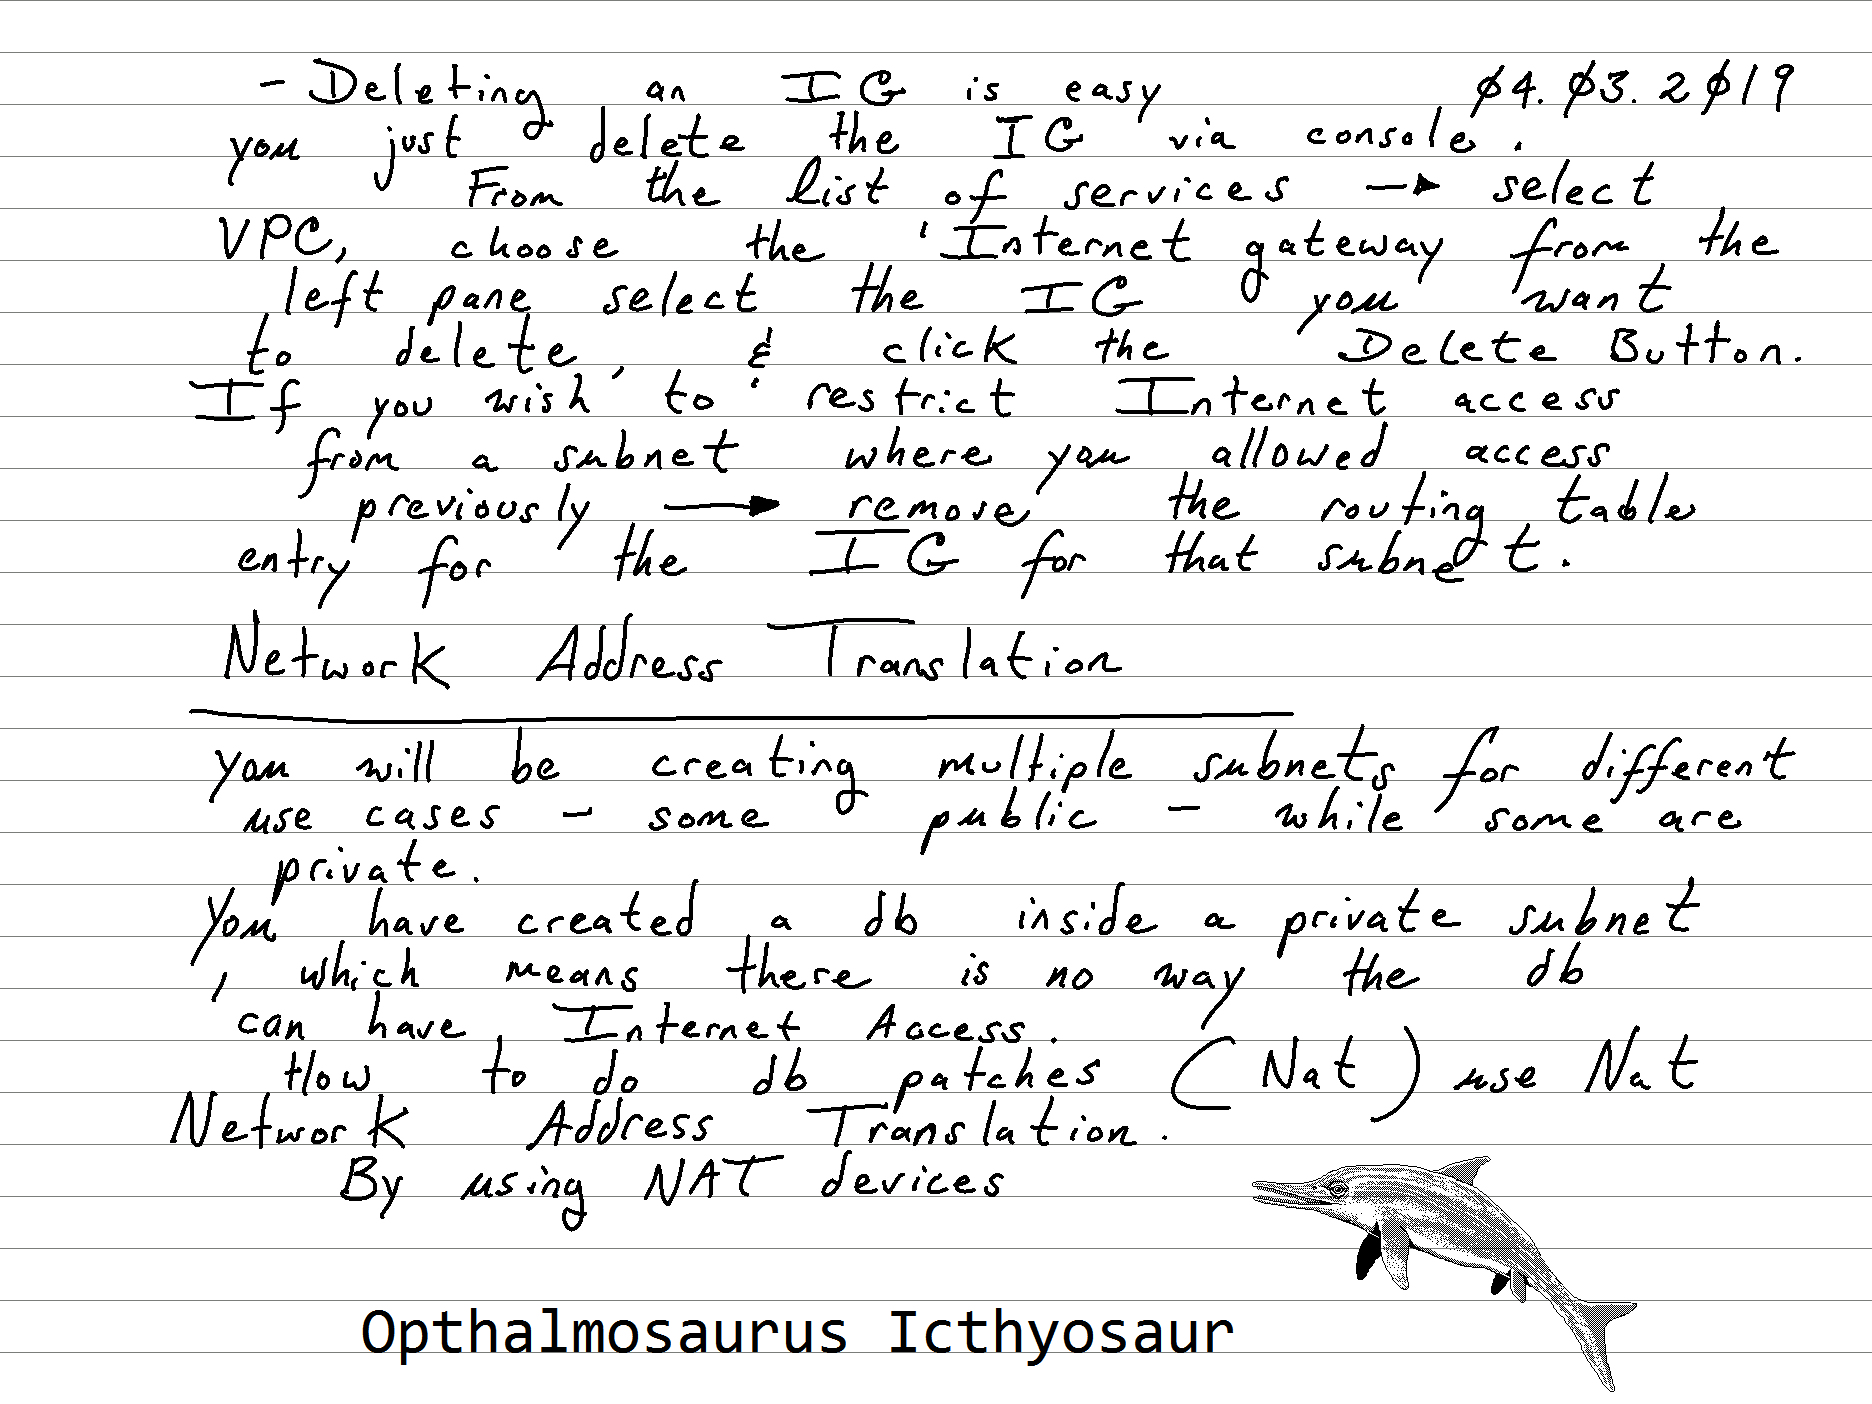 - Deleting an IG is easy Ø4.Ø3.2Ø19
you just delete the IG via console.
From the list of services → select
VPC, choose the 'Internet gateway from the
left pane select the IG you want
to delete, & click the Delete Button.
If you wish to restrict Internet access
from a subnet where you allowed access
previously → remove the routing table
entry for the IG for that subnet.
Network Address Translation
you will be creating multiple subnets for different
use cases - some public - while some are
private.
You have created a db inside a private subnet
, which means there is no way the db
can have Internet Access.
How to do db patches (Nat) use Nat
Network Address Translation.
By using NAT devices
Opthalmosaurus Icthyosaur